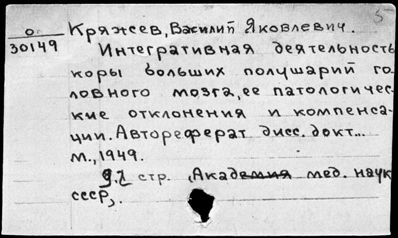 О
30149
Кряжсев, Василий Яковлевич.
Интегративная деятельность
коры больших полушарий го-
ловного мозга, ее патологичес-
кие отклонения и компенса-
ции. Автореферат дисс. докт...
м., 1949.
стр. (Академия мед. наук
СССР).